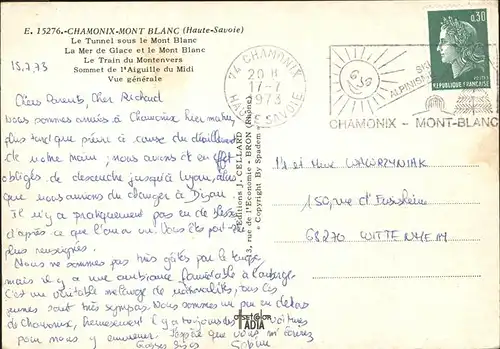 E. 15276.-CHAMONIX-MONT BLANC (Haute-Savoie)
Le Tunnel sous le Mont Blanc
La Mer de Glace et le Mont Blanc
Le Train du Montenvers
Sommet de l'Aiguille du Midi
Vue générale
18.7.73
Chers Parents, Cher Richard
Nous sommes arrivés à Chamonix hier matin,
plus tard que prévu à cause du déraillement
de notre train; nous avions été en effet
obligés de descendre jusqu'à Lyon, alors
que nous aurions dû changer à Dijon.
Il n'y a pratiquement pas eu de
d'après ce que l'on a Vous êtes peut-être
plus renseignés.
Nous ne sommes pas très gâtés par le temps,
mais il y a une ambiance formidable à l'auberge.
C'est un véritable mélange de nationalités, tous les
jeunes sont très sympas. Nous sommes un peu en dehors
de Chamonix, heureusement il y a toujours des voitures
pour nous y emmener. J'espère que vous m'écrirez
Grosses bises Sabine
74 CHAMONIX
20 H
17-7
1973
HAUTE SAVOIE
SKI
ALPINISME
CHAMONIX - MONT-BLANC
0,30
REPUBLIQUE FRANÇAISE
POSTES
Editions J. CELLARD
3, rue de l'Economie - BRON (Rhône)
« Copyright By Spadem »
Mr et Mme WAWORZYNIAK
15 rue d'Ensisheim
68270 WITTENHEIM
IADIA